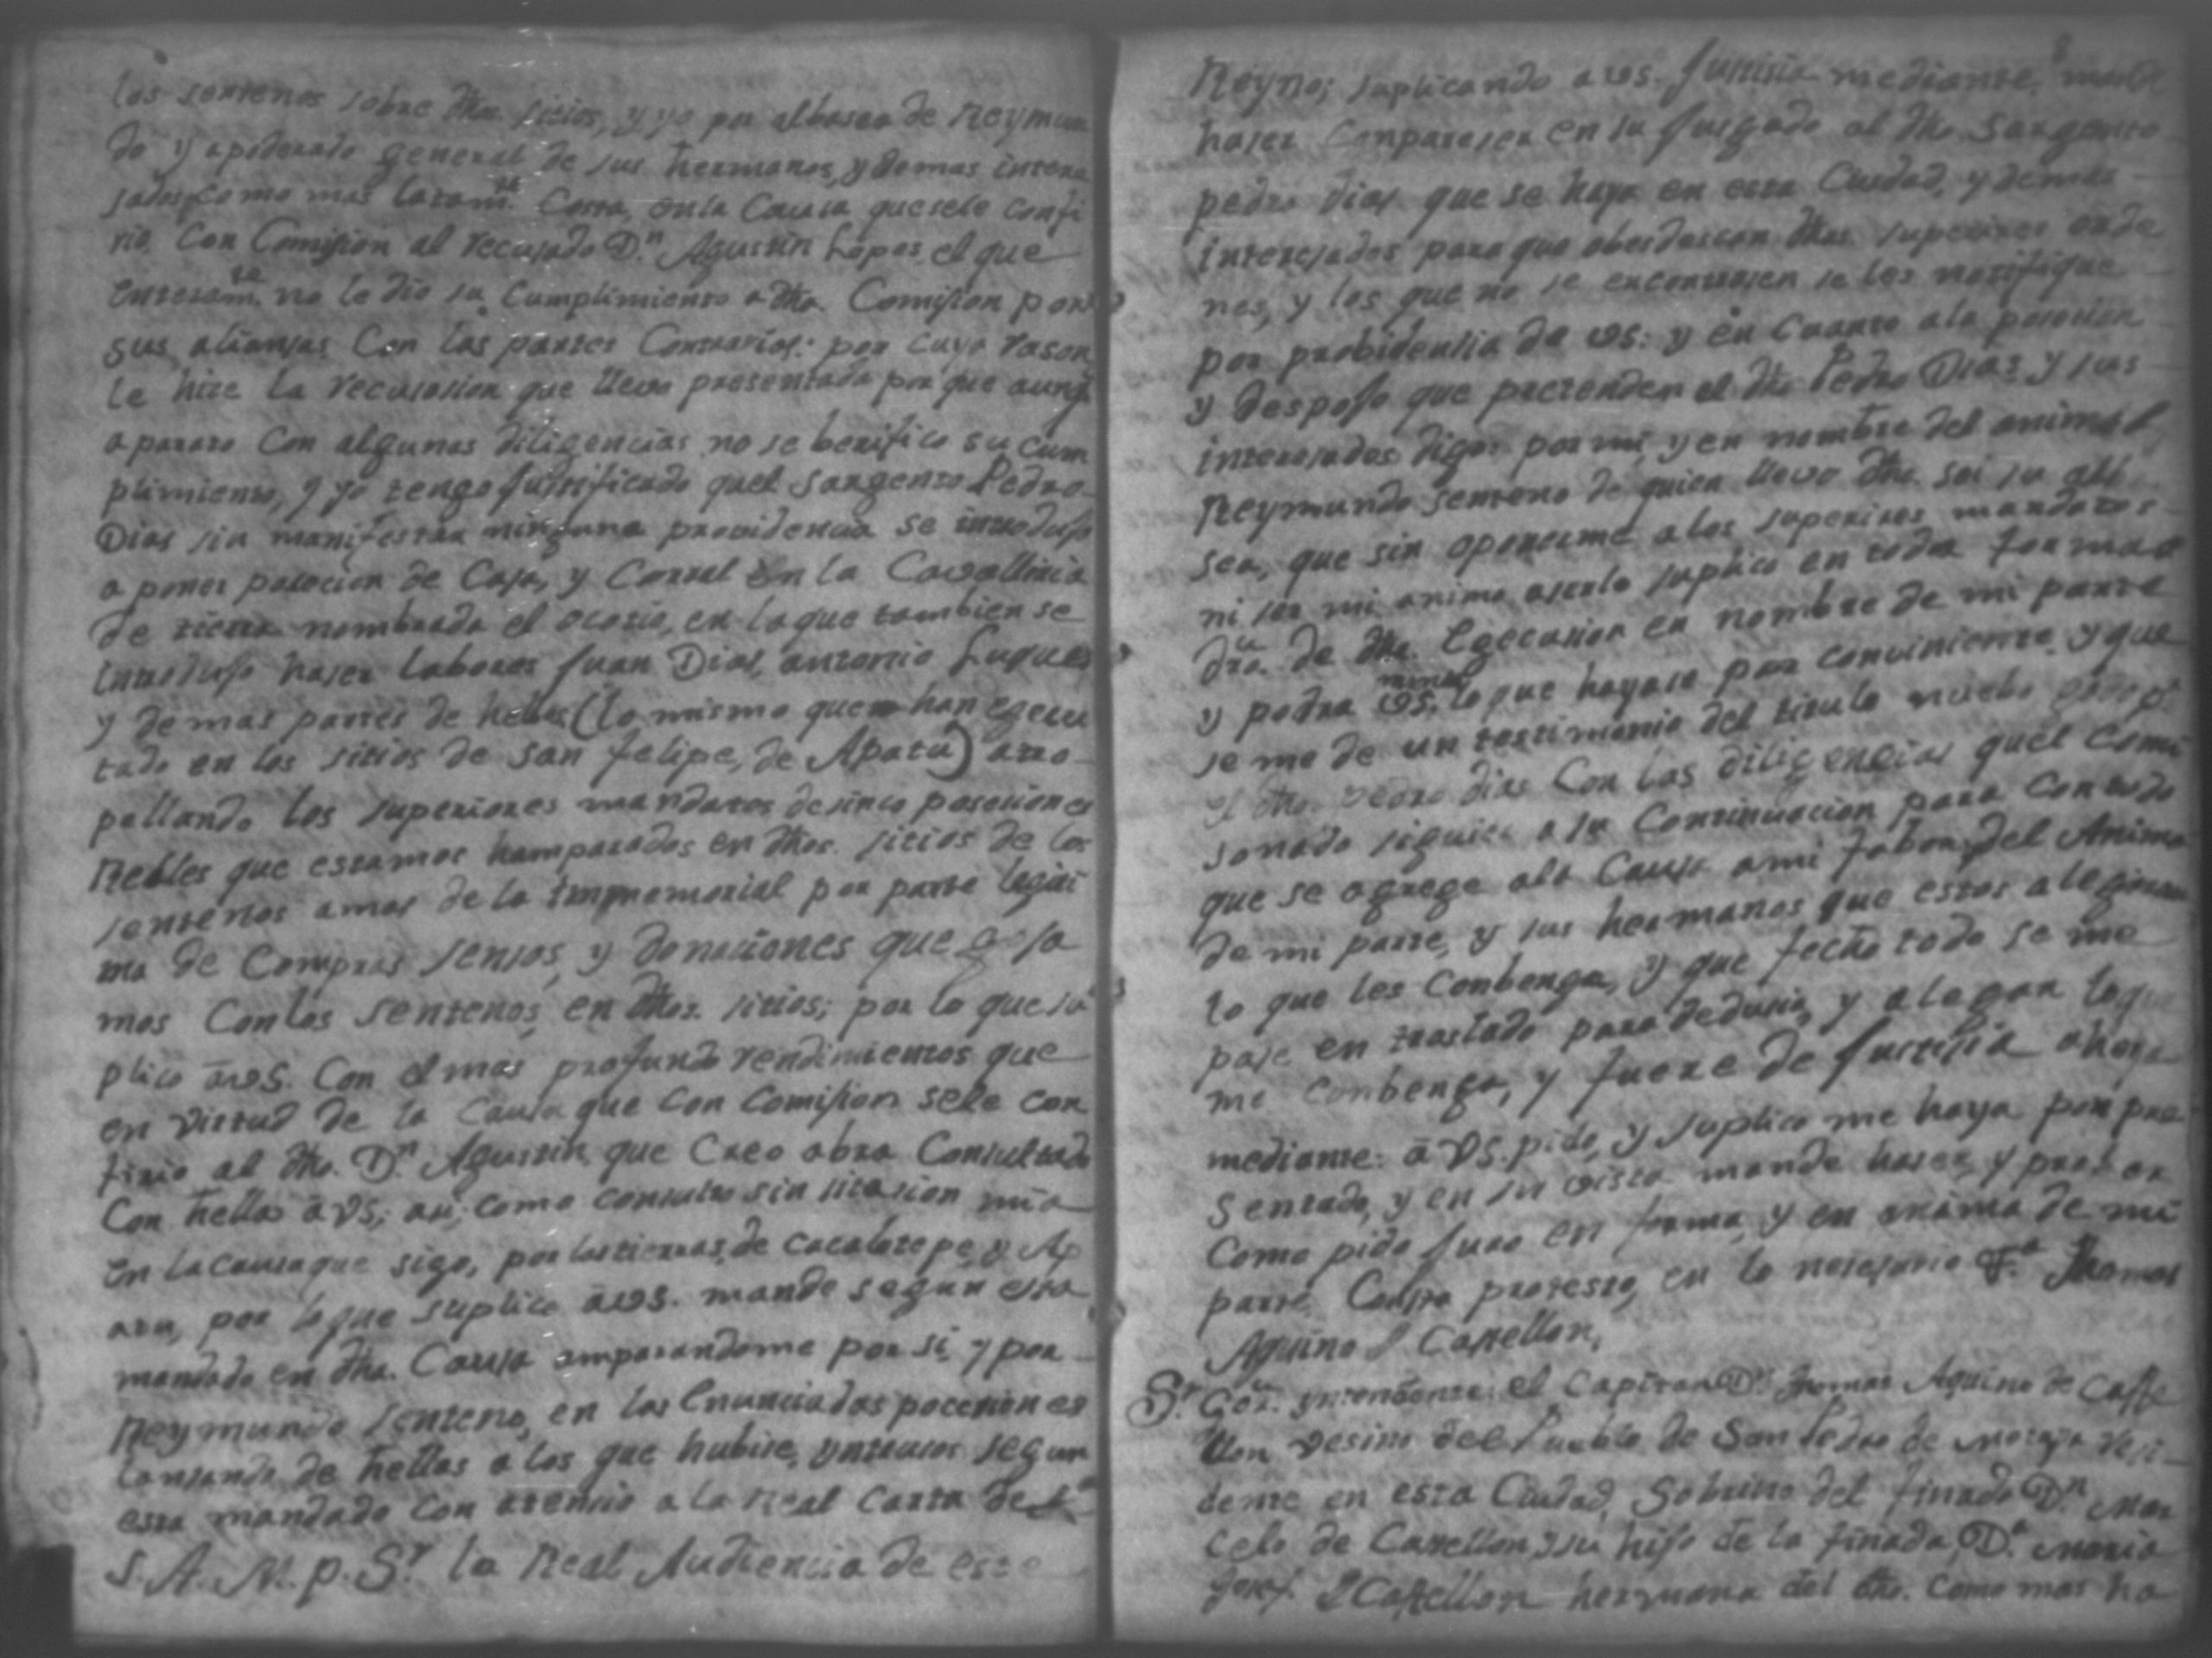 los sentenos sobre dhos. sitios, y yo por albasea de Reymun
do y apoderado general de sus hermanos, y demas intere
sados como mas latamte. Costa, en la Causa que se le confi
rio, Con Comision al recusado Dn. Agustin Lopes, el que
enteramte. no le dio su Cumplimiento a dha. Comision por
sus aliansas Con las partes Contrarias: por cuya rason
le hise la recusasion que llevo presentada por que aunq
aparato Con algunas diligencias no se berifico su cum
plimiento, y yo tengo justificado quel Sargento Pedro
Dias sin manifestar ninguna providencia se introdujo
a poner posocion de Casa, y Corral en la Cavallería
de tierra nombrada el ocotio, en la que tambien se
introdujo haser labores Juan Dias, antonio Luques
y demas partes de hellos (lo mismo que han egecu
tado en los sitios de San felipe, de Apatu) atro
pellando los superiores mandatos de sinco posesiones
Reales que estamos hamparados en dhos. sitios de los
sentenos amas de la Immemorial por parte legiti
ma de Compras sensos, y donaciones que gosa
mos Con los Sentenos, en dhos. sitios; por lo que su
plico a VS. Con el mas profundo rendimientos que
en virtud de la Causa que con Comision se le con
firio al dho. Dn. Agustin que Creo obra Consultada
Con hellas a VS; asi, como consulto sin sitasion mia
en la causa que sigo, por las tierras, de cacalotepe, y Ap
atu, por lo que suplico a VS. mande segun esta
mandado en dha. Causa amparandome por si, y por
Reymundo Senteno, en las Enunciadas pocesiones
lansando de hellas a los que hubire, yntrusos segun
esta mandado con atencio a la Real Carta de
S. A. M. p. Sr. la Real Audiencia de este
Reyno; suplicando a VS. Justisia mediante mande
haser Compareser en su Jusgado al dho. Sargento
pedro dias que se haya en esta Ciudad, y demas
interesados para que obesdescan dhas. superiores orde
nes, y los que no se encontrasen se les notifique
por probidensia de VS: y en Cuanto ala posesion
y despojo que pretenden el dho Pedro Dias y sus
interesados digo: por mi, y en nombre del anima d
Reymundo Senteno de quien llevo dho. soi su alb
sea, que sin oponerme a los superiores mandatos
ni ser mi animo aserlo suplico en toda forma d
dro. de dha. Egecusion en nombre de mi parte
y podra VS. mandar lo que hayase por conviniente, y que
se me de un testimonio del titulo nuebo
el dho. Pedro dias Con las diligencias quel Comi
sonado siguio a su Continuacion para con todo
que se agrege ala Causa a mi fabor, y del Anima
de mi parte, y sus hermanos que estos alegaran
lo que les Conbenga, y que fecho todo se me
pase en traslado para dedusir, y alegar loque
me Conbenga, y fuere de Justisia ahoga
mediante: a VS. pido, y suplico me haya por pre
sentado, y en su vista mande haser, y prober
Como pido Juro en forma, y en anima de mi
parte, Costas protesto, en lo nesesario Va. Thomas
Aquino d Castellon,
Sr. Gor. yntendente: el Capitan Dn Thomas Aquino de Caste
llon vesino del Pueblo de San Pedro de Metapa resi
dente en esta Ciudad, Sobrino del finado Dn. Mar
celo de Castellon, y su hijo de la finada, Da. Maria
Josef. d Castellon hermana del dho. como mas ha